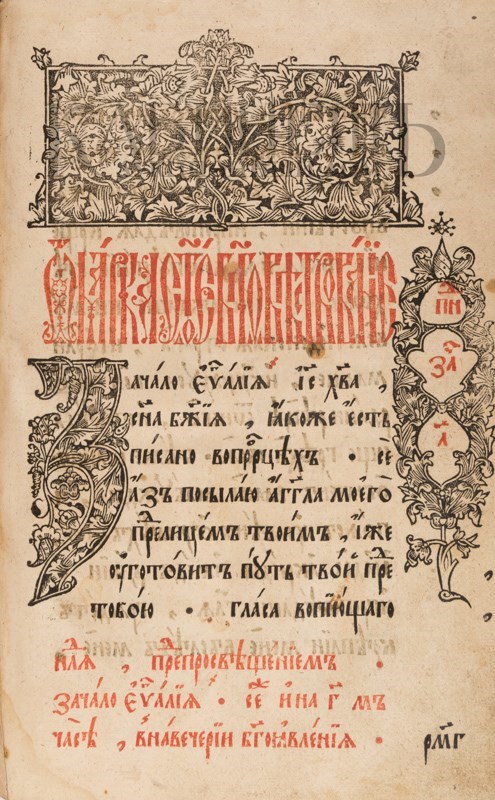 Ѿ МА́РКА СТ҃О́Е БЛ҃ГОВѢСТВОВА́НЇЕ
пнⷣ
за҃
а҃
Зача́ло є҆ѵⷢ҇а́лїѧ і҆с҃ хв҃а ,
сн҃а бж҃їѧ , ꙗ҆́коже є҆́сть
писано вопрⷪ҇рцѣхъ . се
а҆́зъ посыла́ю а҆́гг҃ла моего̀
преⷣлице́мъ твои́мъ , и҆́же
ᲂу҆гото́витъ пꙋ́ть тво́й преⷣ
тобо́ю . гла́са вопїю́щаго
нⷣлѧ , преⷣпросвѣще́нїемъ .
зача́ло є҆ѵⷢ҇а́лїѧ . сеⷤ и҆ на г҃ мъ
часѣ̀ , внавече́рїи бг҃оѧвле́нїѧ .
рм҃г